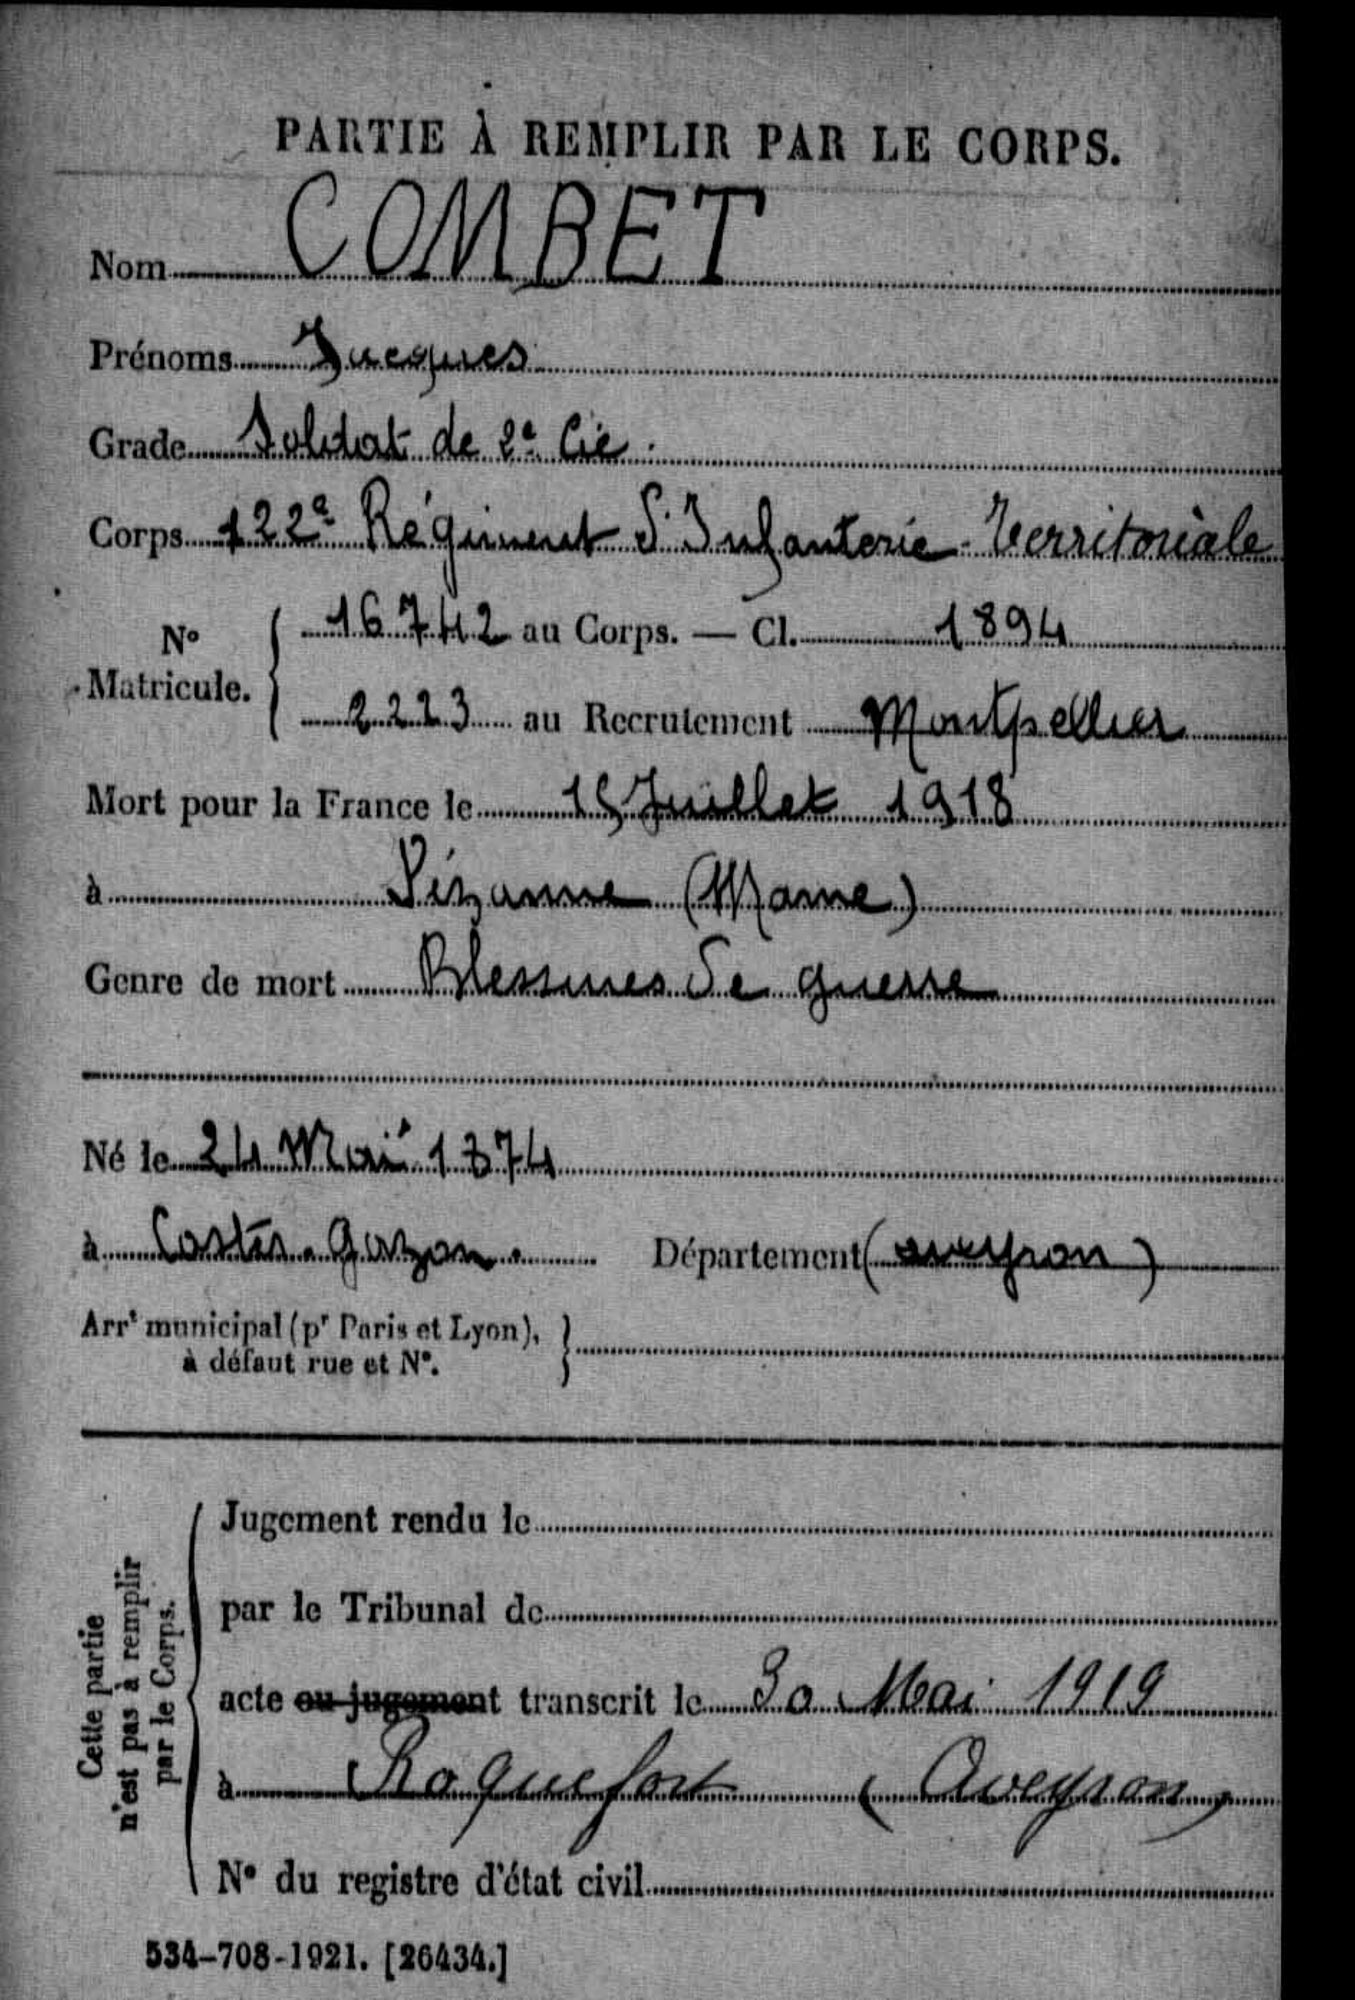 PARTIE À REMPLIR PAR LE CORPS.
Nom COMBET
Prénoms Jacques
Grade Soldat de 2e Cie.
Corps 122e Régiment d'Infanterie Territoriale
No Matricule. { 16742 au Corps. — Cl. 1894
2223 au Recrutement Montpellier
Mort pour la France le 15 Juillet 1918
à Sézanne (Marne)
Genre de mort Blessures de guerre
Né le 24 Mai 1874
à Costes-Gozon. Département (aveyron)
Arrt municipal (pr Paris et Lyon), }
à défaut rue et No.
Cette partie n'est pas à remplir par le Corps.
Jugement rendu le
par le Tribunal de
acte ou jugement transcrit le 30 Mai 1919
à Roquefort (Aveyron)
No du registre d'état civil
534-708-1921. [26434.]